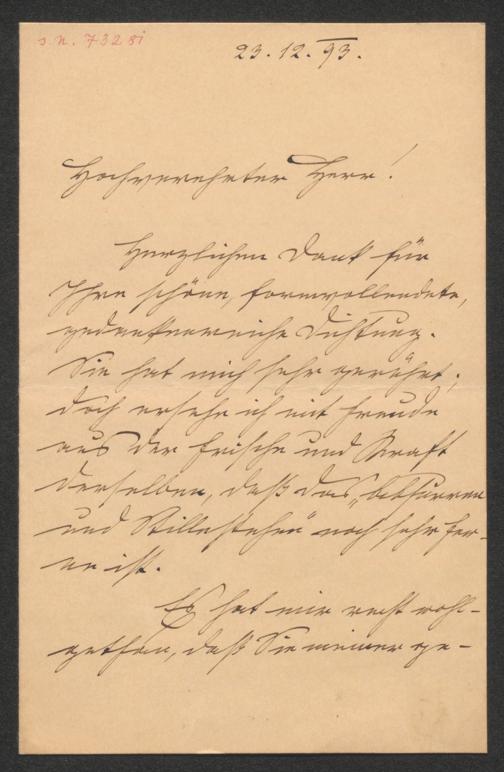 s. n. 732 81
23. 12. 93.
Hochverehrter Herr!
Herzlichen Dank für
Ihre schöne, formvollendete,
gedankenreiche Dichtung.
Sie hat mich sehr gerührt;
doch ersehe ich mit Freude
aus der Frische und Kraft
derselben, daß das
und Stillestehen" noch sehr fer-
ne ist.
Es hat mir recht wohl-
gethan, daß Sie meiner ge-